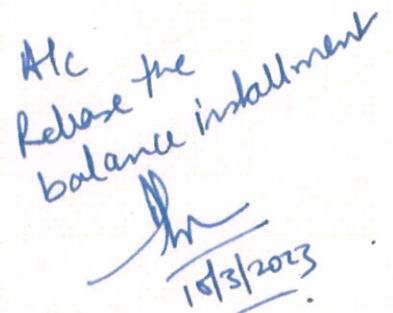 A/c
Release the
balance installment
/3/2023